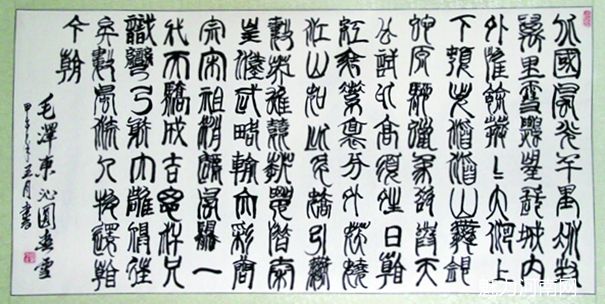 北國風光千里冰封
萬里雪飄望長城內
外惟餘莽莽大河上
下頓失滔滔山舞銀
蛇原馳蠟象欲與天
公試比高須晴日看
紅裝素裹分外妖嬈
江山如此多嬌引無
數英雄競折腰惜秦
皇漢武略輸文采唐
宗宋祖稍遜風騷一
代天驕成吉思汗只
識彎弓射大雕俱往
矣數風流人物還看
今朝
毛澤東沁園春雪